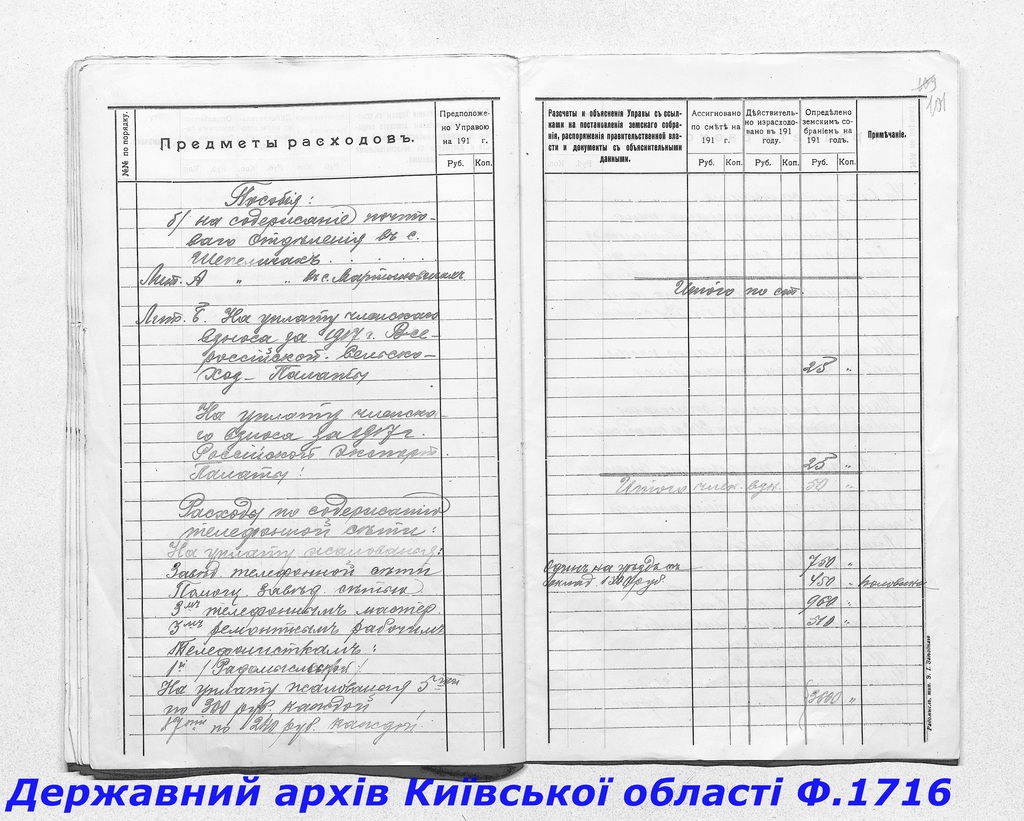 199
101
№№ по порядку.
Предметы расходовъ.
Предположе-
но Управою
на 191 г.
Руб. Коп.
Пособія:
б/ на содержаніе почто-
ваго отдѣленія въ с.
Шепеличахъ . . . . .
Лит. А " " въ с. Мартыновичахъ
Лит. Б. На уплату членскаго
взноса за 1917 г. Все-
россійской. Сельско-
Хоз- Палаты
На уплату членска-
го взноса за 1917 г.
Россійской Экспорт.
Палаты:
Расходы по содержанію
телефонной сѣти:
На уплату жалованья:
Завѣд. телефонной сѣти
Помощ. завѣд. сѣтью
3мъ телефоннымъ мастер.
3мъ ремонтнымъ рабочимъ
Телефонисткамъ:
1й / Радомысльской /
На уплату жалованья 5
по 300 руб. каждой
17 по 240 руб. каждой
Разсчеты и объясненія Управы съ ссыл-
ками на постановленія земскаго собра-
нія, распоряженія правительственной вла-
сти и документы съ объяснительными
данными.
Ассигновано
по смѣтѣ на
191 г.
Руб. Коп.
Дѣйствитель-
но израсходо-
вано въ 191
году.
Руб. Коп.
Опредѣлено
земскимъ со-
браніемъ на
191 годъ.
Руб. Коп.
Примѣчаніе.
Итого по ст.
25 "
25 "
Итого член. взн. 50 "
750 "
оклад 1300 руб 450 " половина
960 "
510 "
3600 "
Радомысль, тип.
Державний архів Київської області Ф.1716